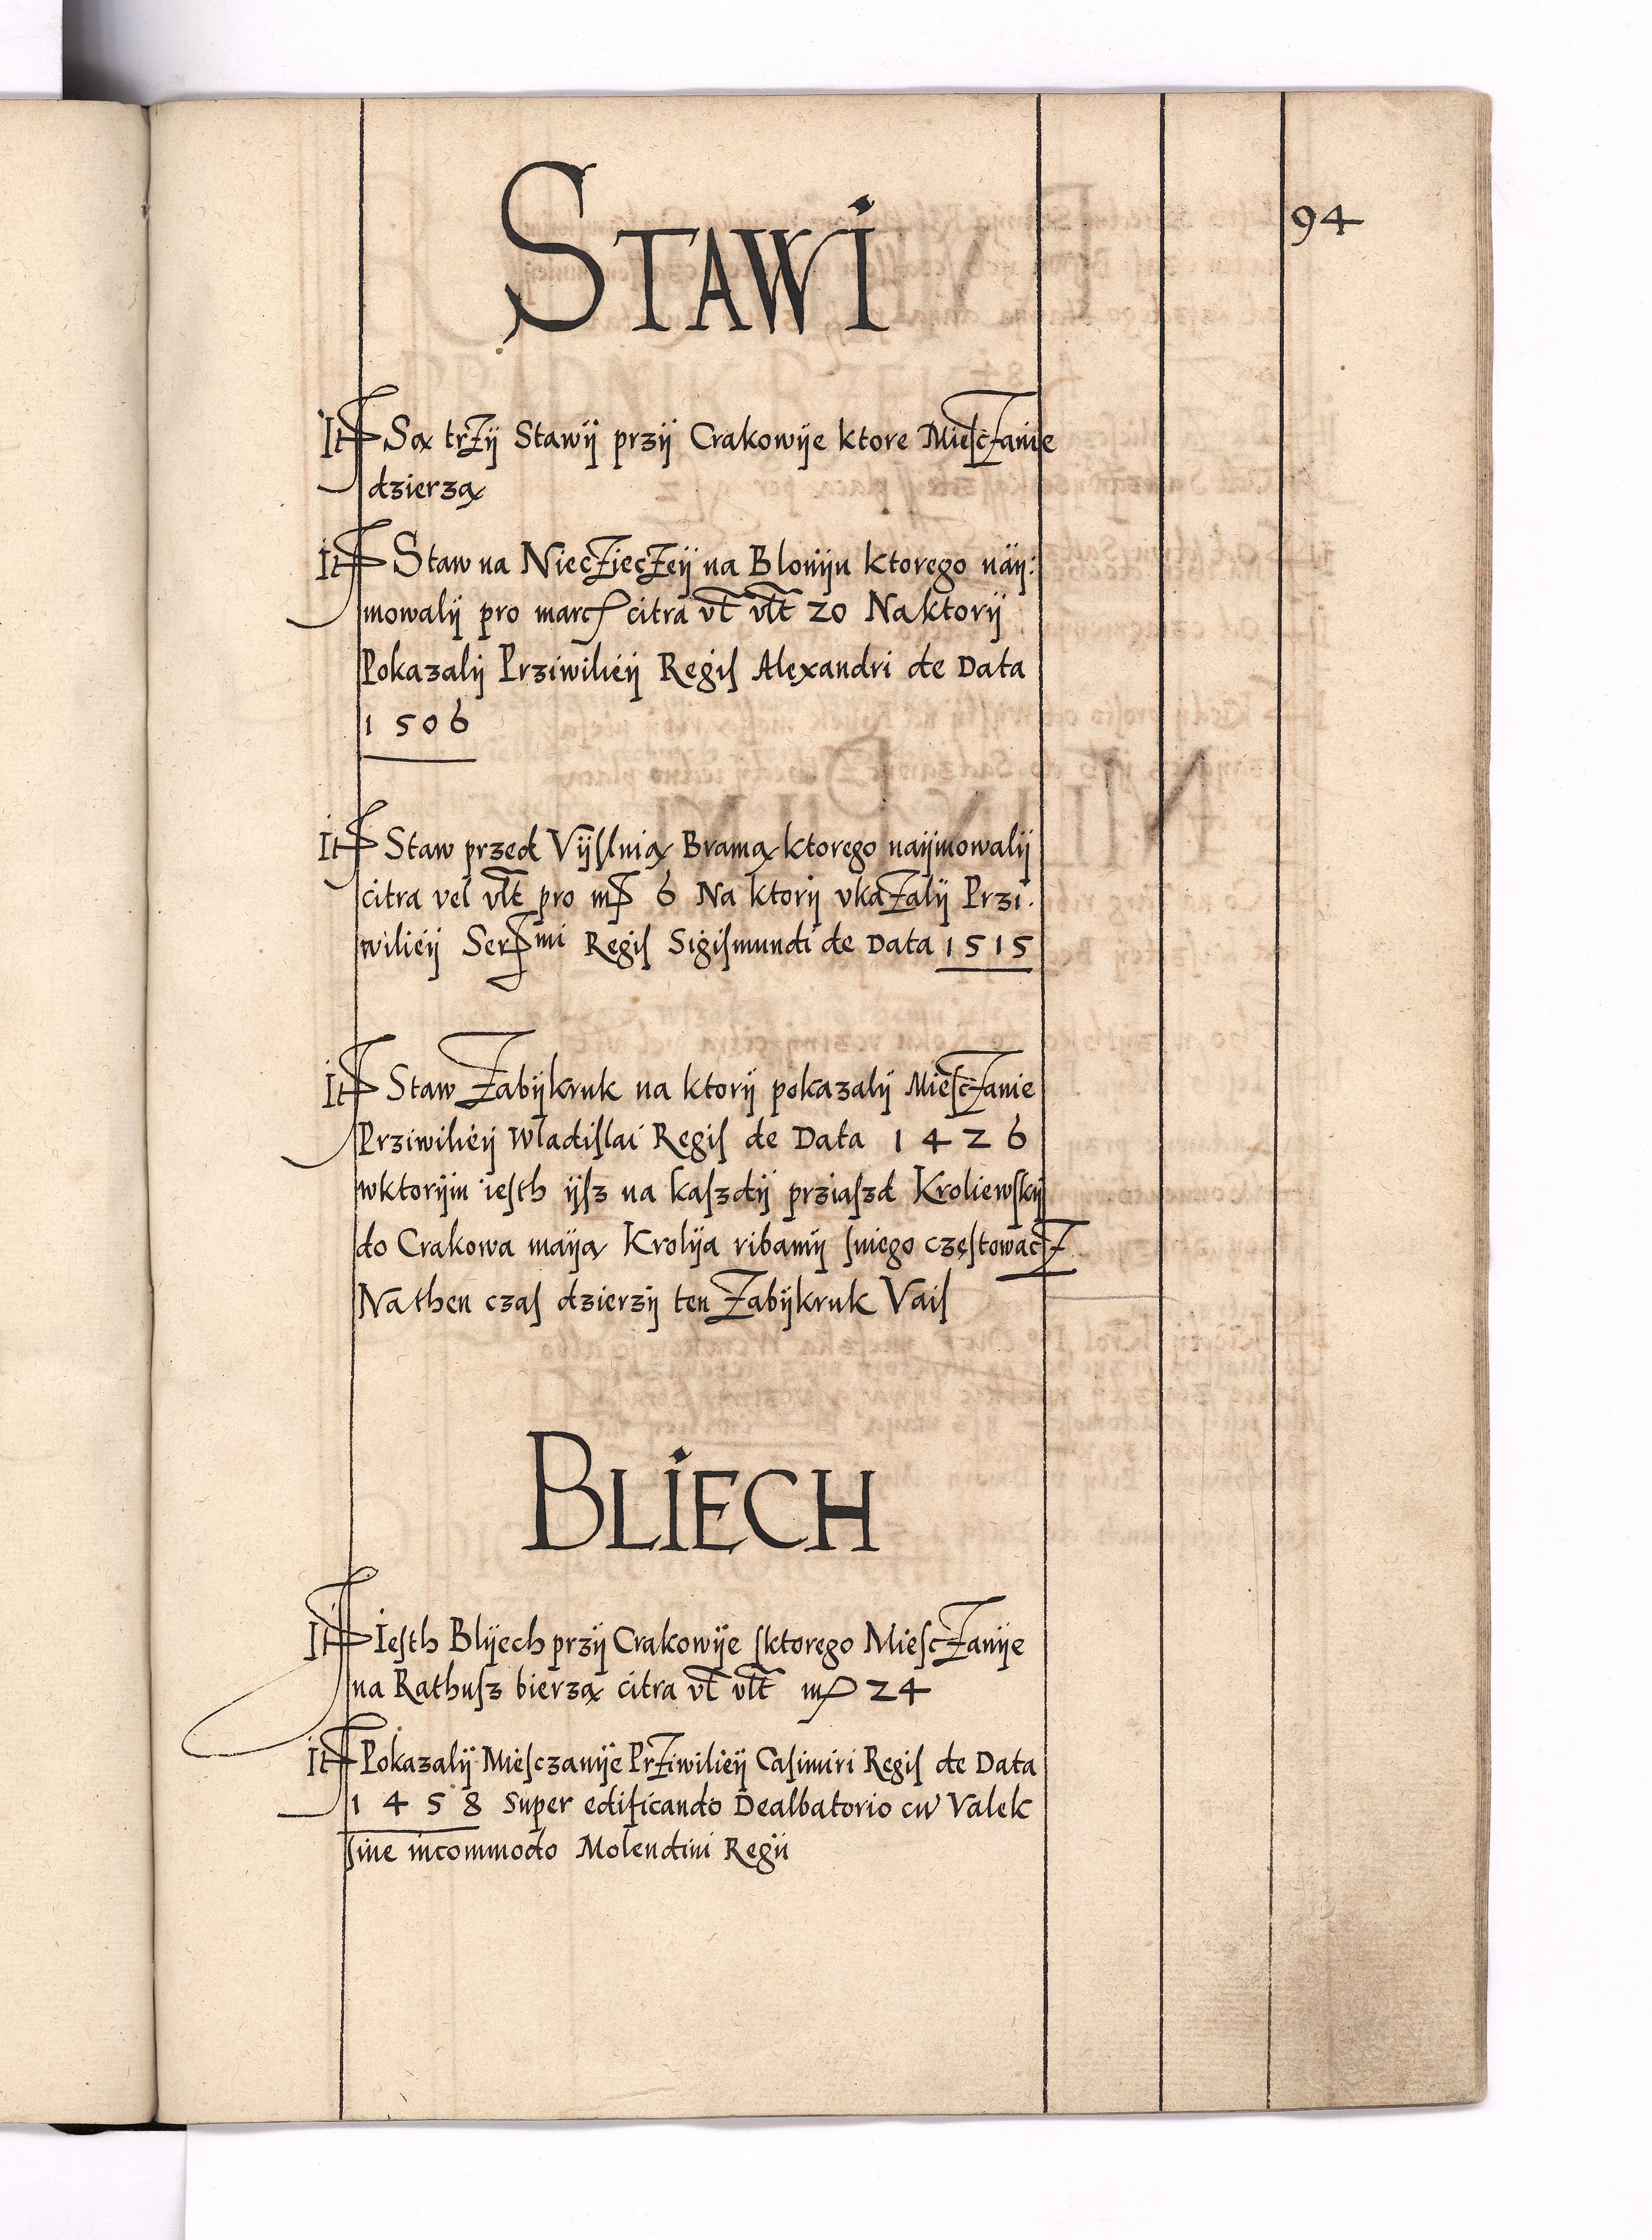 94
STAWI
It Są trzij Stawij przij Crakowije ktore Miesczanie
dzierzą
It Staw na Nieczieczeij na Blonijn ktorego naij:
mowalij pro marc citra vl vlt 20 Naktorij
Pokazalij Prziwilieij Regiſ Alexandri de Data
1506
It Staw przed Vijſlnią Bramą ktorego naijmowalij
citra vel vlt pro m 6 Na ktorij vkazalij Przi
wilieij Sermi Regiſ Sigiſmundi de Data 1515
It Staw Zabijkruk na ktorij pokazalij Mieſczanie
Prziwilieij Wladiſlai Regiſ de Data 1426
wktorijm ieſth ijſz na kaſzdij prziaſzd Kroliewſkij
do Crakowa maija Krolija ribamij ſniego częſtowacz
Nathen czaſ dzierzij ten Zabijkruk Vaiſ
BLIECH
It Ieſth Blijech przij Crakowije ſktorego Mieſczanije
na Rathuſz bierzą citra vl vlt m 24
It Pokazalij Mieſczanije Prziwilieij Caſimiri Regiſ de Data
1458 Super edificando Dealbatorio cu Valek
ſine incommodo Molendini Regii